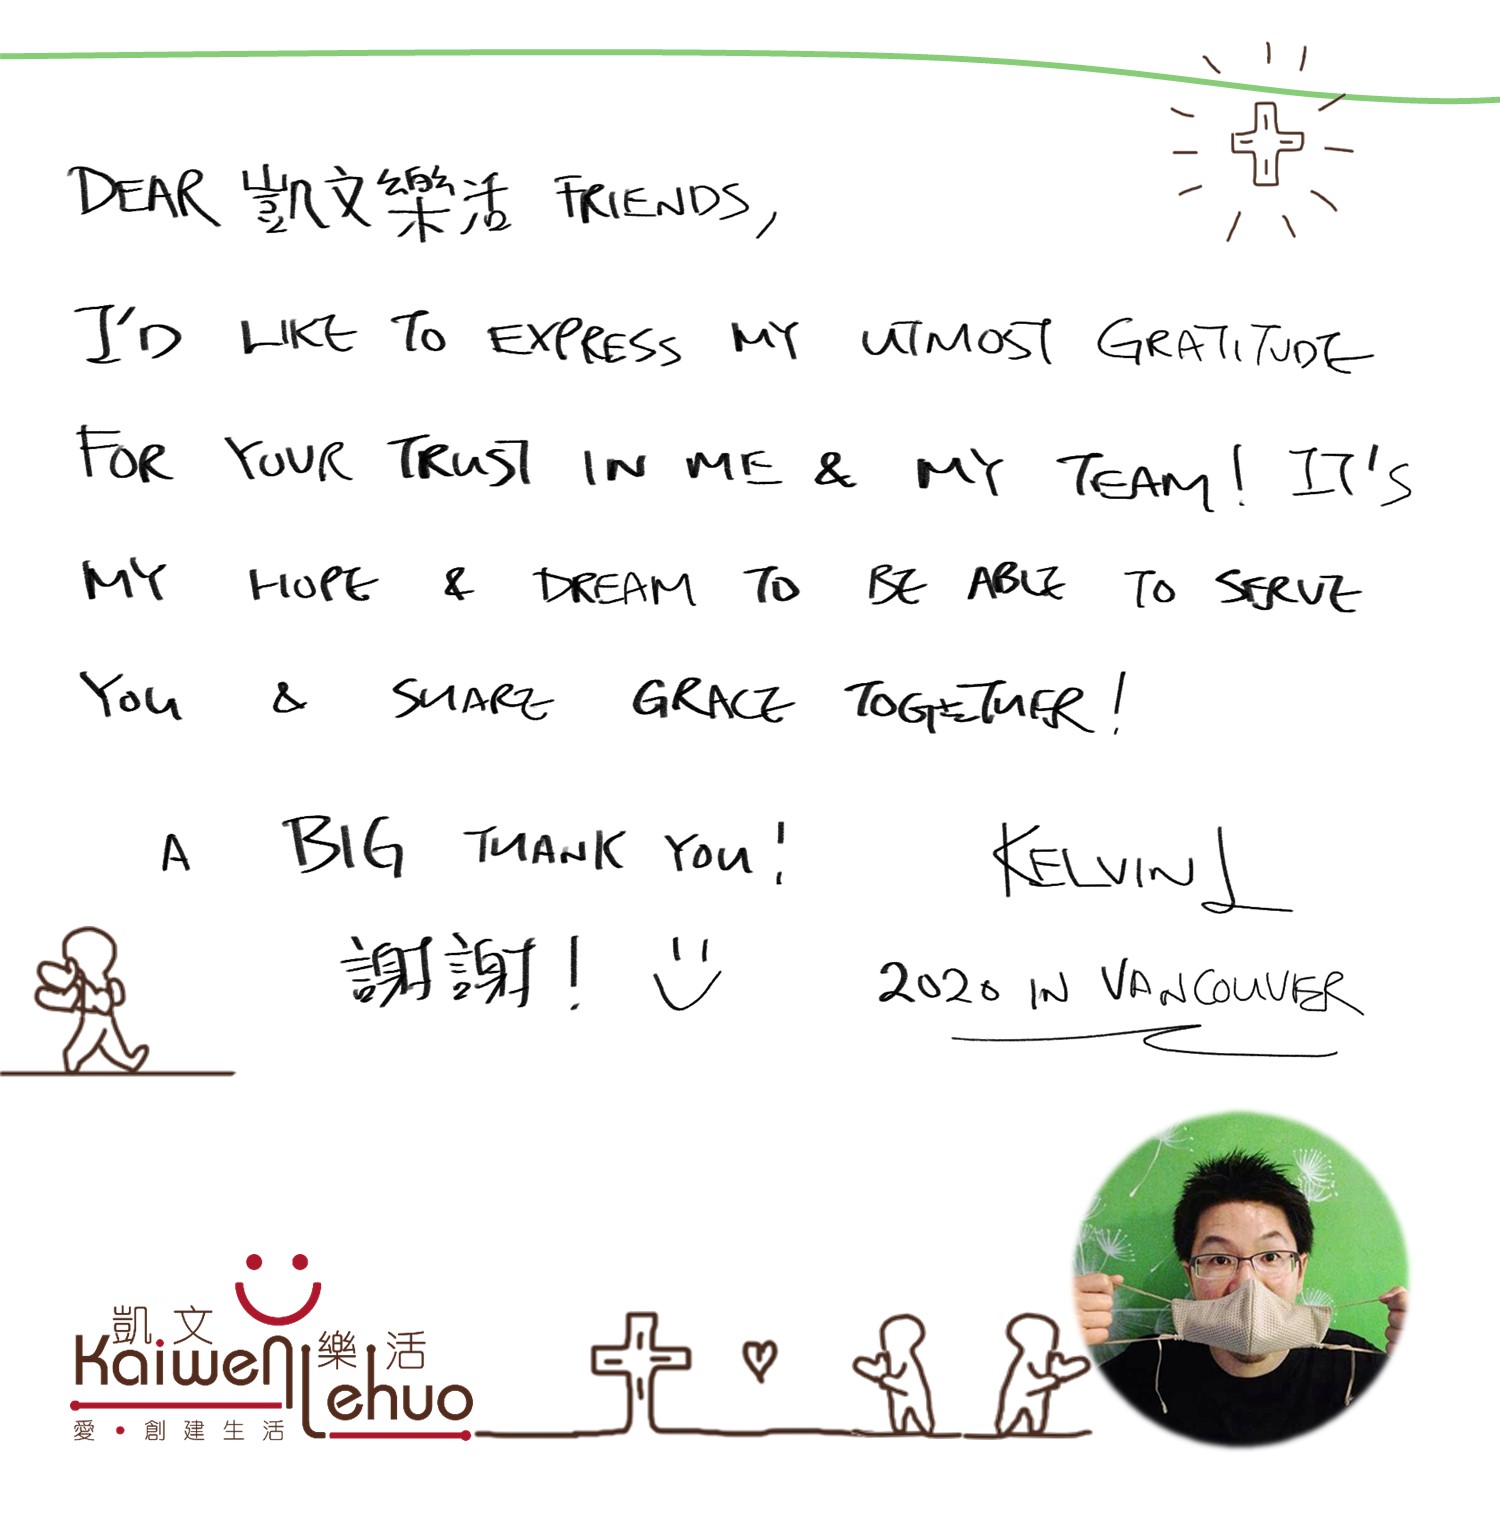 DEAR 凱文樂活 FRIENDS,
I'D LIKE TO EXPRESS MY UTMOST GRATITUDE
FOR YOUR TRUST IN ME & MY TEAM! IT'S
MY HOPE & DREAM TO BE ABLE TO SERVE
YOU & SHARE GRACE TOGETHER!
A BIG THANK YOU!
謝謝!
KELVIN L
2020 IN VANCOUVER
凱文
Kaiwen
樂活
Lehuo
愛•創建生活